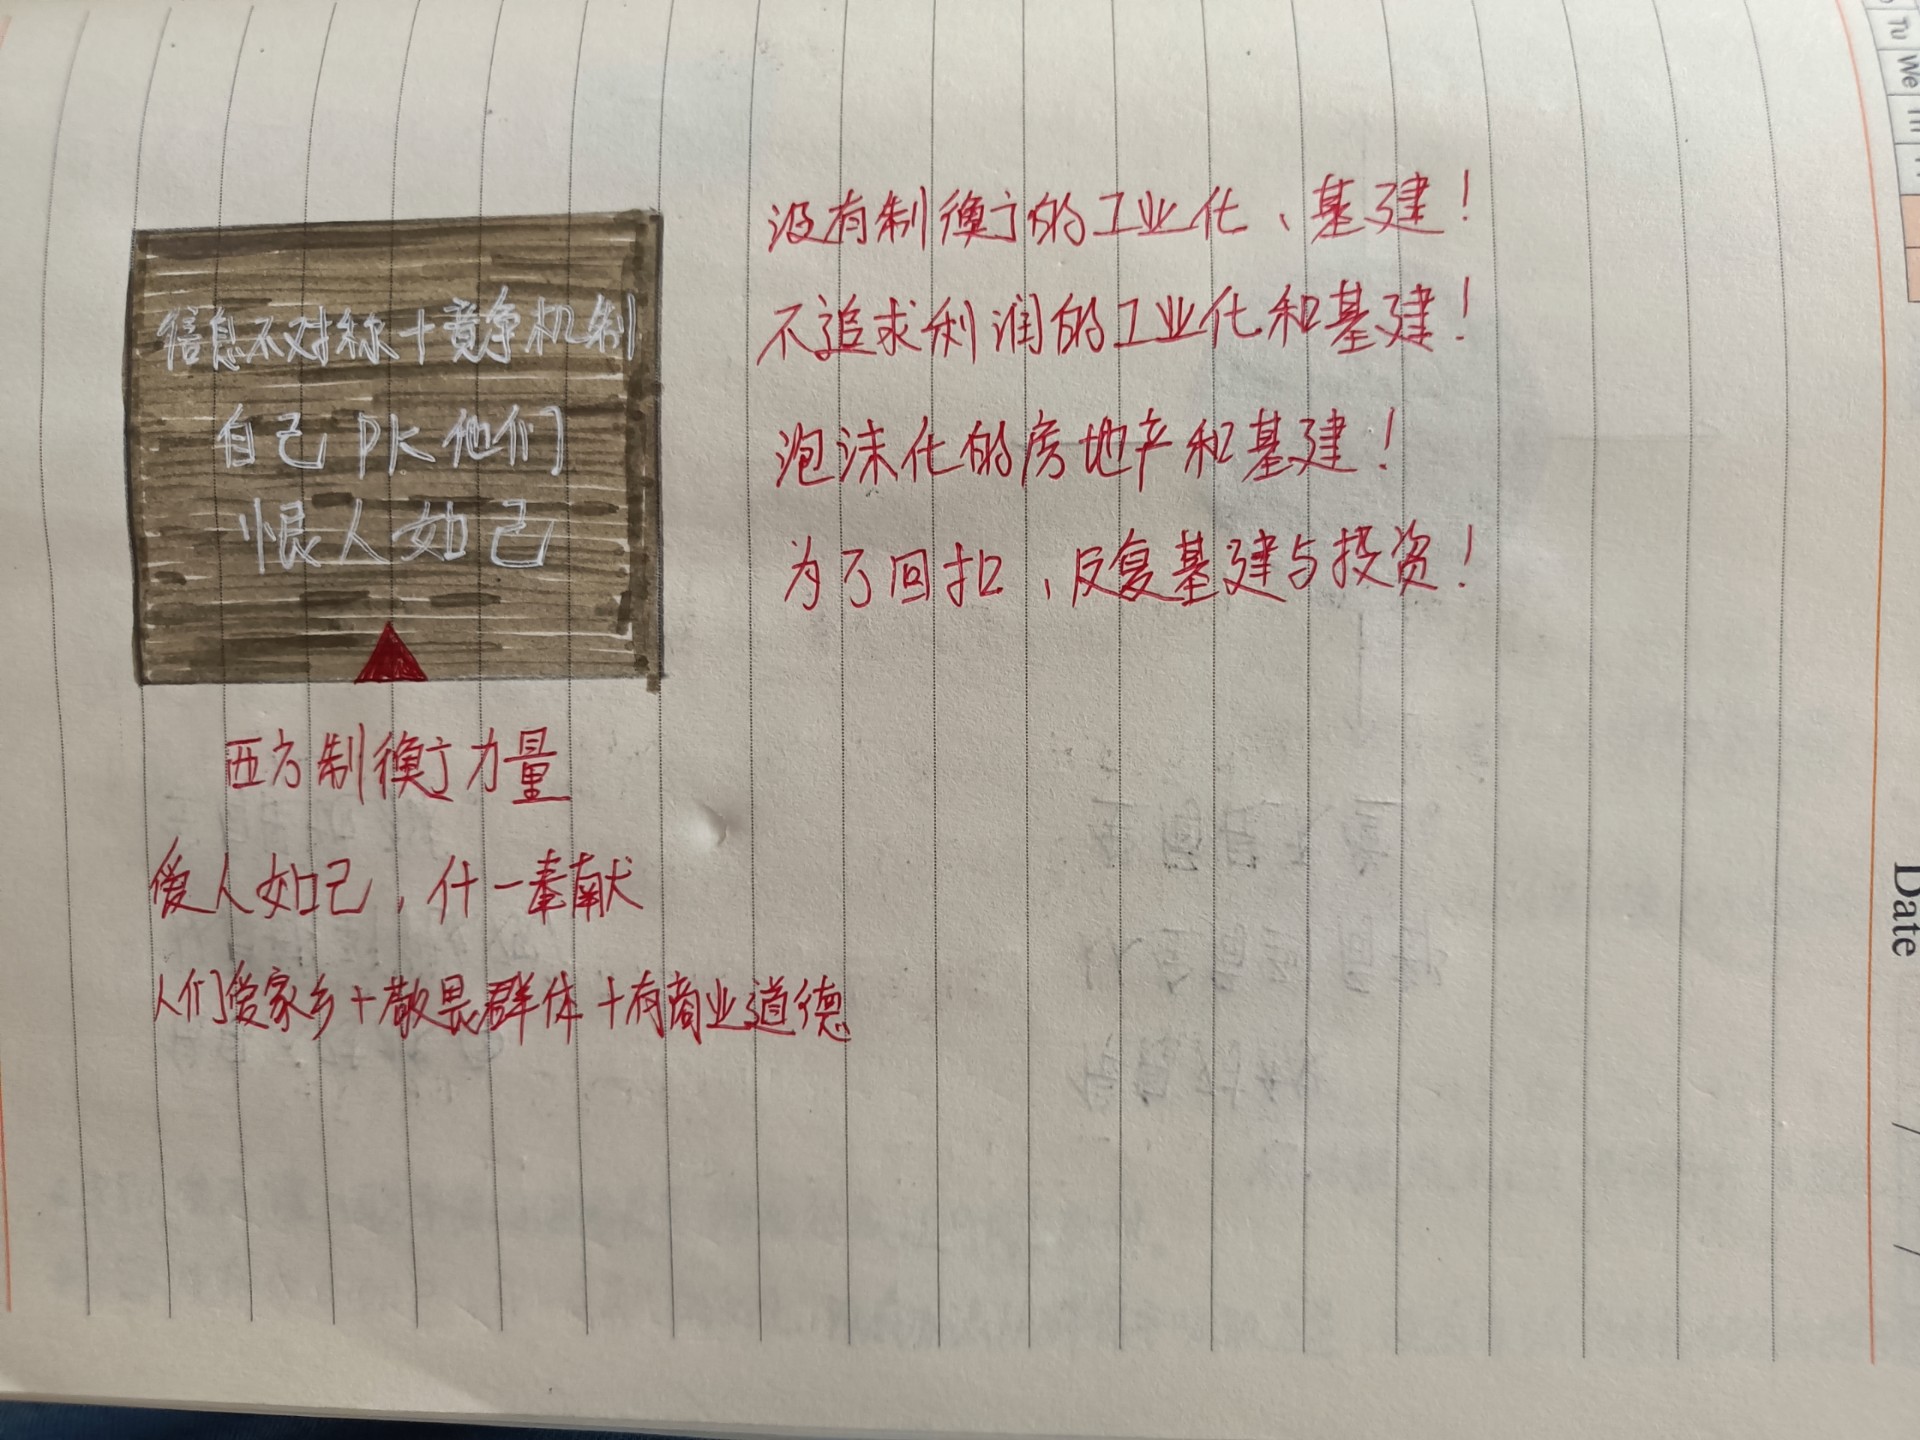 信息不对称+竞争机制
自己PK他们
恨人如己
西方制衡力量
爱人如己，什一奉献
人们爱家乡+敬畏群体+有商业道德
没有制衡的工业化、基建！
不追求利润的工业化和基建！
泡沫化的房地产和基建！
为了回扣、反复基建与投资！
Tu
We
Date / /